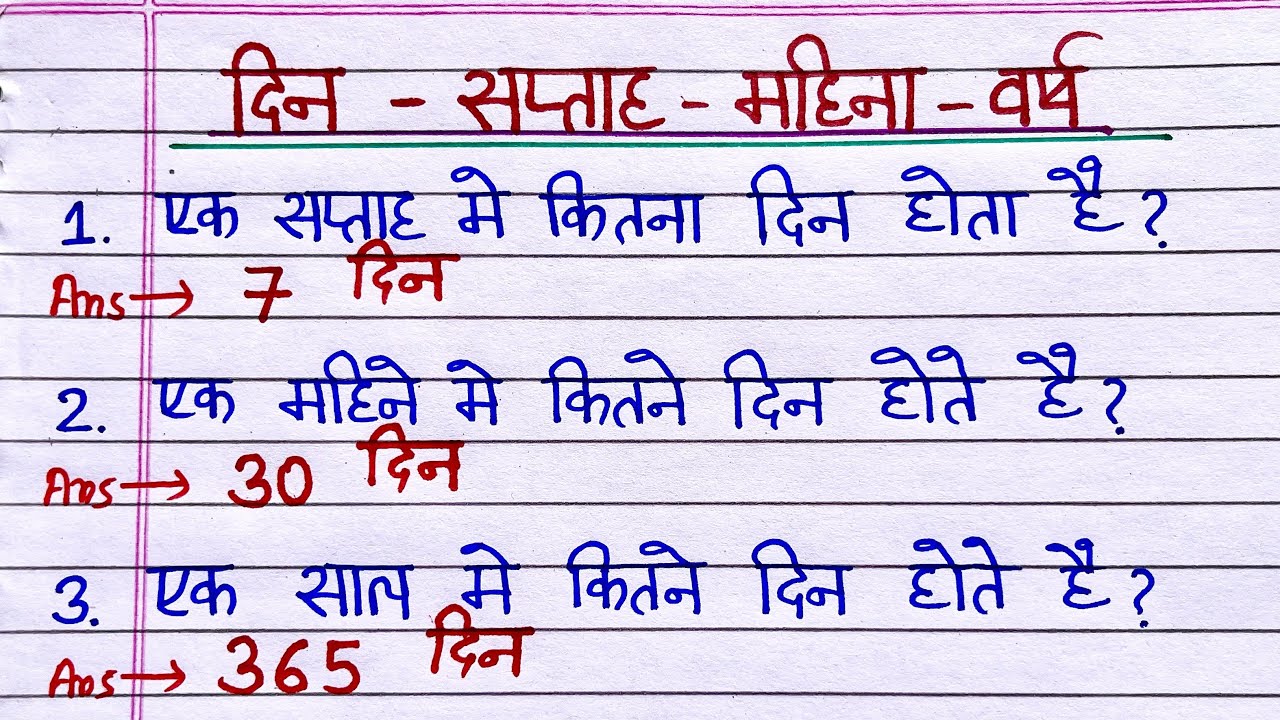 दिन - सप्ताह - महिना - वर्ष
1. एक सप्ताह मे कितना दिन होता है?
Ans → 7 दिन
2. एक महिने मे कितने दिन होते है?
Ans → 30 दिन
3. एक साल मे कितने दिन होते है?
Ans → 365 दिन